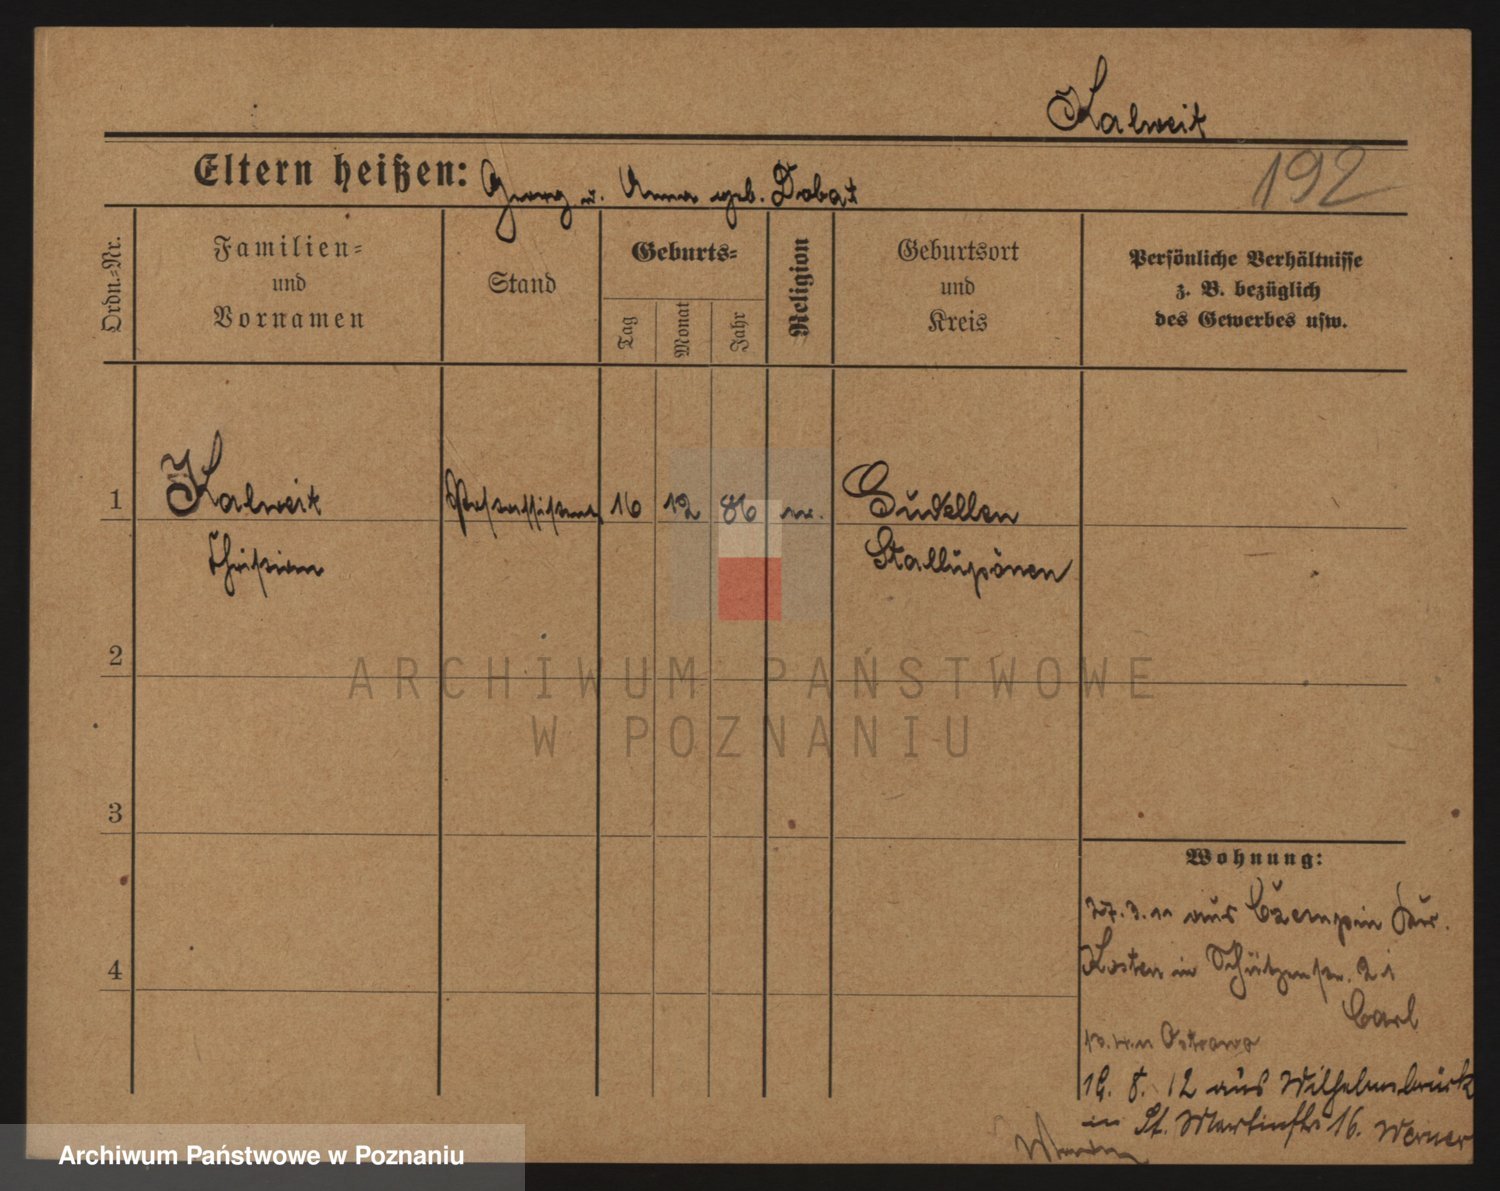 Kalweit
192
Eltern heißen: Georg u. Anna geb. Dobat
Ordn.-Nr.
Familien-
und
Vornamen
Stand
Geburts-
Tag
Monat
Jahr
Religion
Geburtsort
und
Kreis
Persönliche Verhältnisse
z. B. bezüglich
des Gewerbes usw.
1
Kalweit
Christian
Postassistent
16
12
86
ev.
Gudellen
Stallupönen
2
3
4
ARCHIWUM PAŃSTWOWE
W POZNANIU
Wohnung:
27.3.11 aus Czempin
Kosten in Schützenstr. 21
Carl
Ostrowo
19. 8. 12 aus Wilhelmsbrück
in St. Martinstr 16. Werner
Archiwum Państwowe w Poznaniu